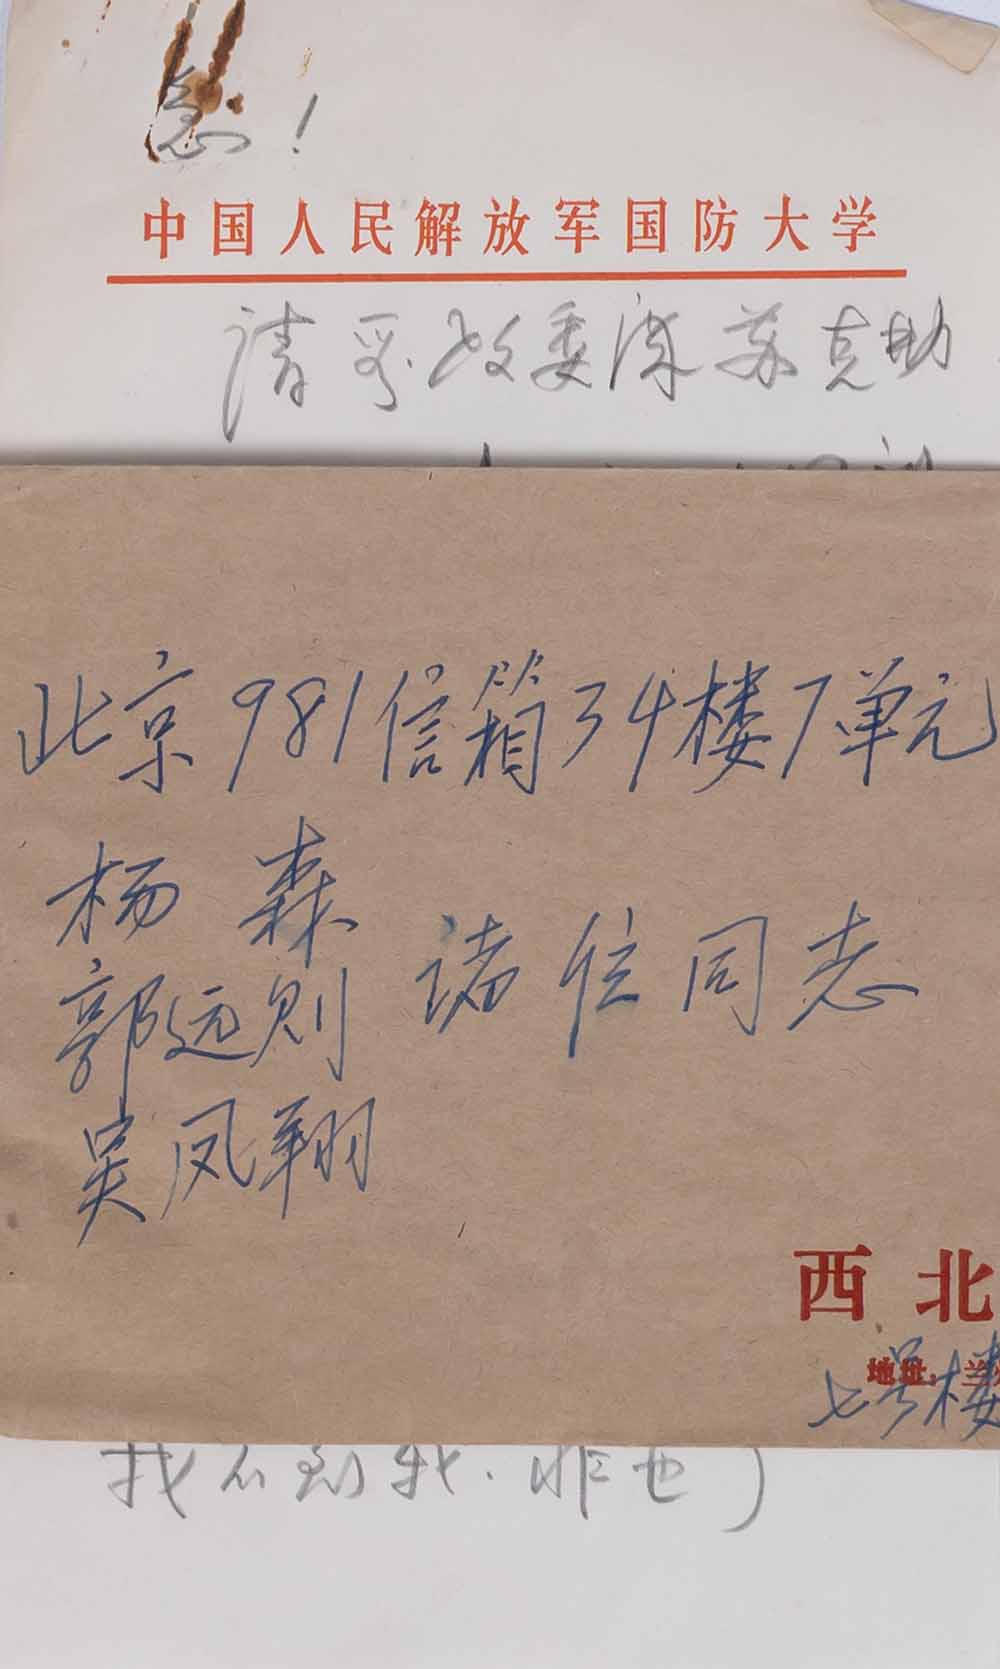 急!
中国人民解放军国防大学
请 政委 苏克勤
北京981信箱34楼7单元
杨 森
郭远则 诸位同志
吴凤翔
西北
地址:兰
七号楼
找不到我.非也)